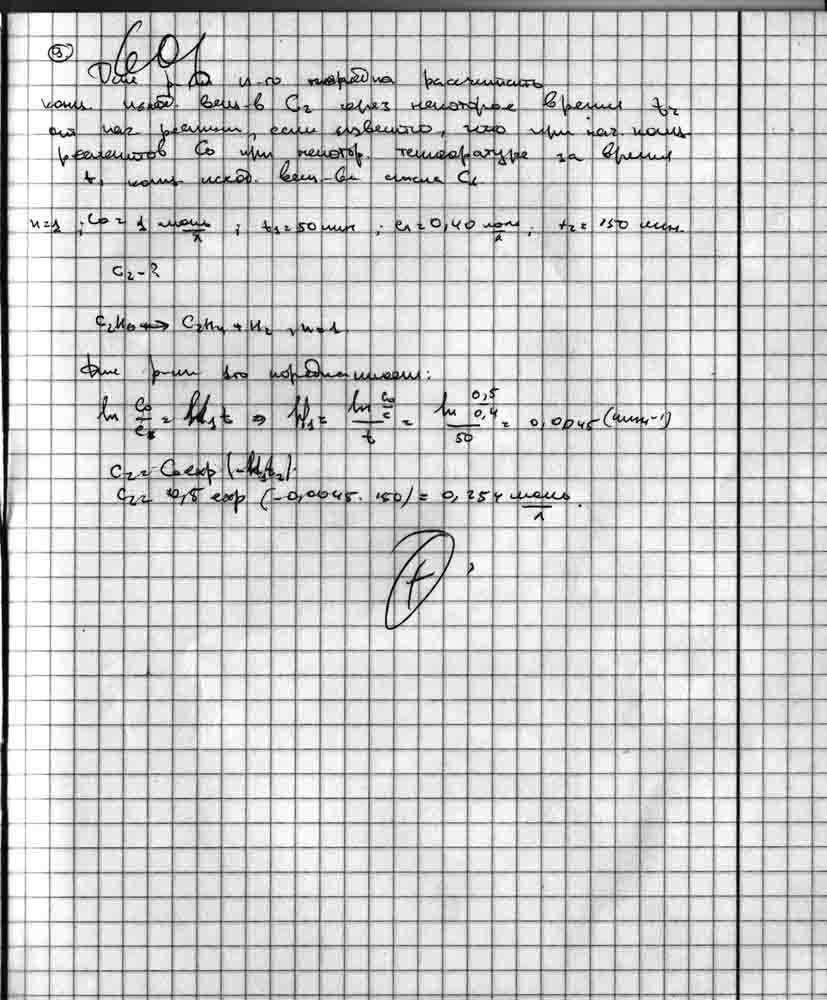 9) 601
Для р-ции n-го порядка рассчитать
конц. исход. вещ-в C₂ через некоторое время t₂
от нач. реакции, если известно, что при нач. конц.
реагентов C₀ при некотор. температуре за время
t₁ конц. исход. вещ-ва стала C₁
n=1 ; C₀ = 1 моль/л ; t₁=50 мин ; c₁=0,40 моль/л ; t₂= 150 мин.
C₂-?
C₂H₆ ↔ C₂H₄ + H₂ , n=1
Для р-ции 1го порядка имеем:
ln C₀/C₁ = k₁t ⇒ k₁ = (ln C₀/C)/t = (ln 0,5/0,4)/50 = 0,0045 (мин⁻¹)
C₂= C₀exp (-k₁t₂).
C₂= 0,5 exp (-0,0045 · 150) = 0,254 моль/л.
+